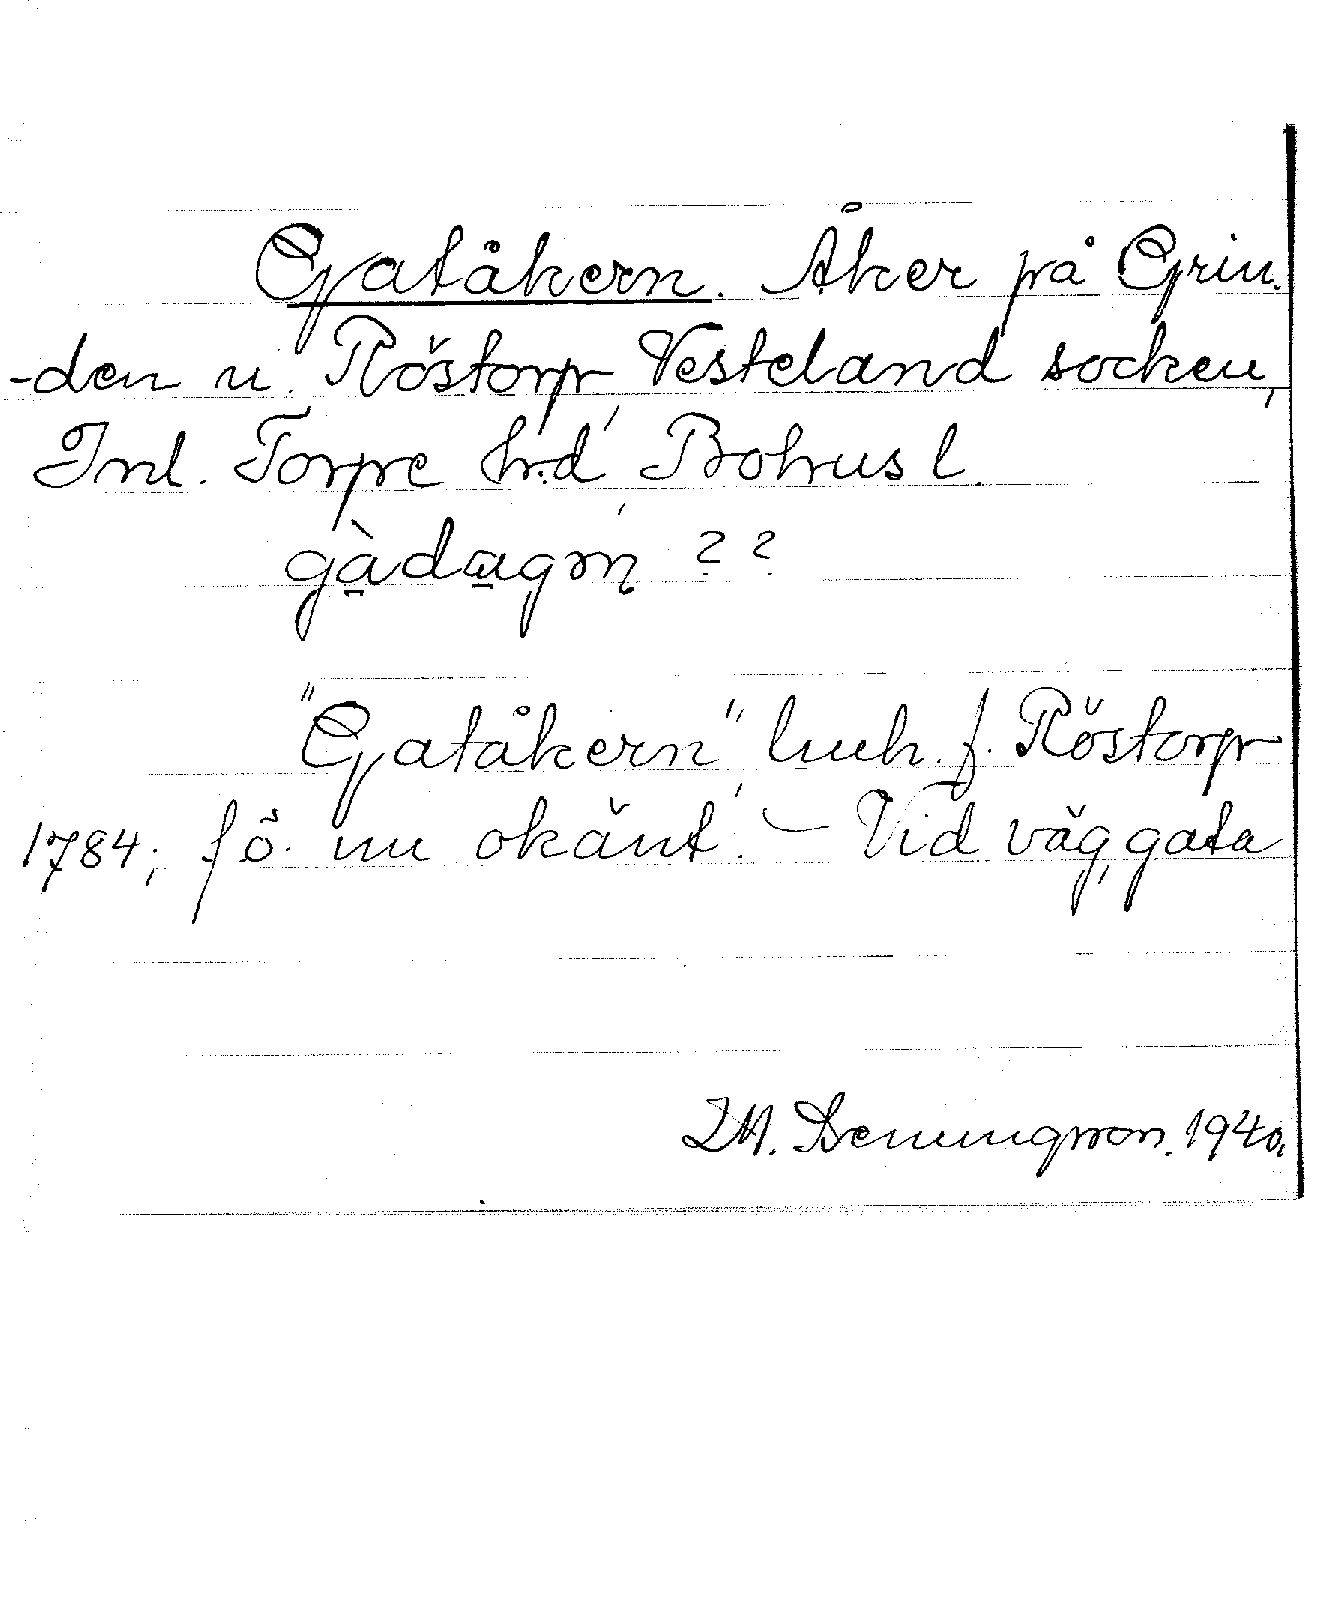 Gatåkern. Åker på Grin-
-den u. Röstorp, Vesteland socken,
Inl. Torpe hrd, Bohusl.
gàdagɷn ??
"Gatåkern", luh. f. Röstorp
1784; fö. nu okänt. – Vid väg, gata
1940.